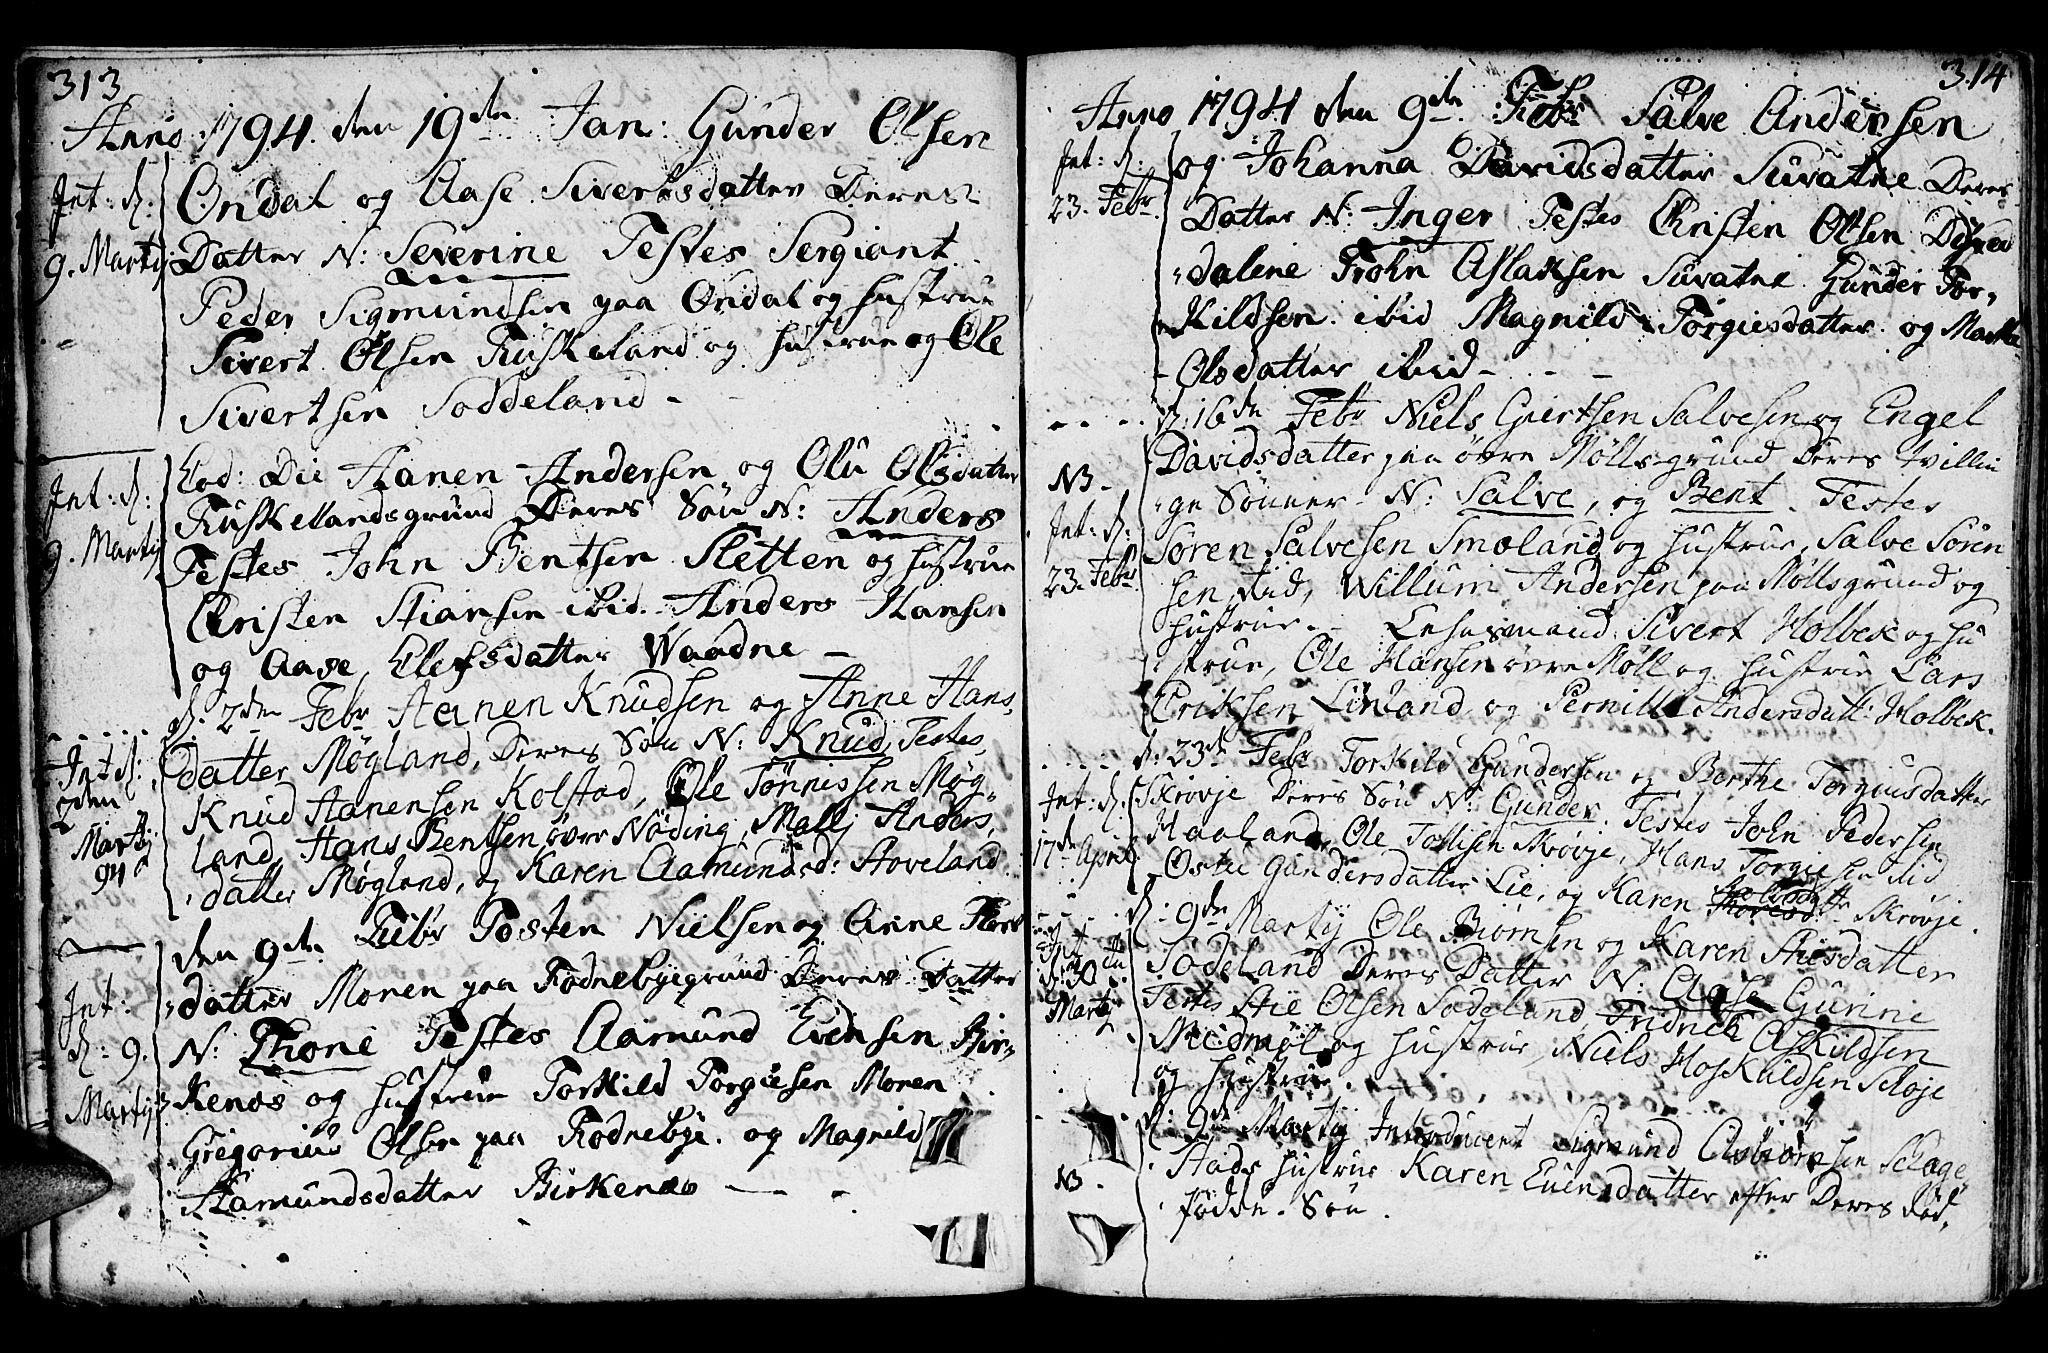 313
Anno 1794. den 19de Jan: Gunder Olsen
Int: d:
9. Martij
Ondal og Aase Sivertsdatter Deres
Datter N: Severine Testes Sergiant
Peder Sigmundsen paa Ondal og hustrue
Sivert Olsen Ruskeland og hustrue og Ole
Sivertsen Soddeland -
Int: d:
9. Martij
Eod: Die Aanen Andersen og Olu Olsdatter
Ruskellandsgrund Deres Søn N: Anders
Testes John Bentsen Sletten og hustrue
Christen Stiansen ibid. Anders Hansen
og Aase Elefsdatter Waadne -
d: 2den Febr Aanen Knudsen og Anne Hans,
Int d:
2den
Martij
94
datter Møgland, Deres Søn N: Knud, Testes,
Knud Aanensen Kolstad, Ole Tønnissen Møg,
land, Hans Bentsen øvre Nøding, Mallj Anders,
datter Møgland, og Karen Aamundsd: Stoveland.
den 9den Febr Tosten Nielsen og Anne
Int:
d: 9.
Martij
datter Monen paa Rodnebyegrund Deres Datter
N: Thone Testes Aamund Evensen Bir,
Kenes og hustrue Torkild Torgiesen Monen
Gregorius Olsen paa Rodnebye. og Magnild
Aamundsdatter Birkenes - - -
314
Anno 1794 den 9de. Febr Salve Andersen
Int: d:
23. Febr.
og Johanna Davidsdatter Suvatne Deres
Datter N: Inger Testes Christen Olsen
dalene Trohn Aslaksen Suvatne Gunder Tor,
Kildsen ibid Magnild Torgiesdatter. og
Olsdatter ibid - - -
d: 16de Febr Niels Giertsen Salvesen og Engel
NB.
Int: d:
23. Febr.
Davidsdatter paa øvre Møllsgrund Deres tvillin
ge Sønner N: Salve, og Bent. Testes
Søren Salvesen Smoland og hustrue, Salve Søren
sen ibid, Willum Andersen paa Møllsgrund og
hustrue. - Lehnsmand Sivert Holbek og hu
strue, Ole Hansen øvre Møll og hustrue Lars
Eriksen Linland og Pernille Andersdatt: Holbek.
d: 23de Febr Torkild Gundersen og Berthe Torgiusdatter
Int: d:
17de April
Skrøvje Deres Søn N: Gunder. Testes John Pedersen
Haaland, Ole Tollisen Skrøvje, Hans Torgiesen ibid
Østen Gundersdatter Lie, og Karen Skrøvje.
d: 9de Martij Ole Biørnsen og Karen Stiesdatter
Int:
d: 30
Martij
Sødeland Deres Datter N: Aase Gurine
Testes Stie Olsen Sødeland, Fridrick Askildsen
Meidmøl og hustrue, Niels Hoskuldsen Seløje
og hustrue. -
NB.
d: 9de Martij Introduceret Sigmund Asbiørnsen
Stads hustrue Karen Evensdatter efter Deres død,
fødde. Søn.